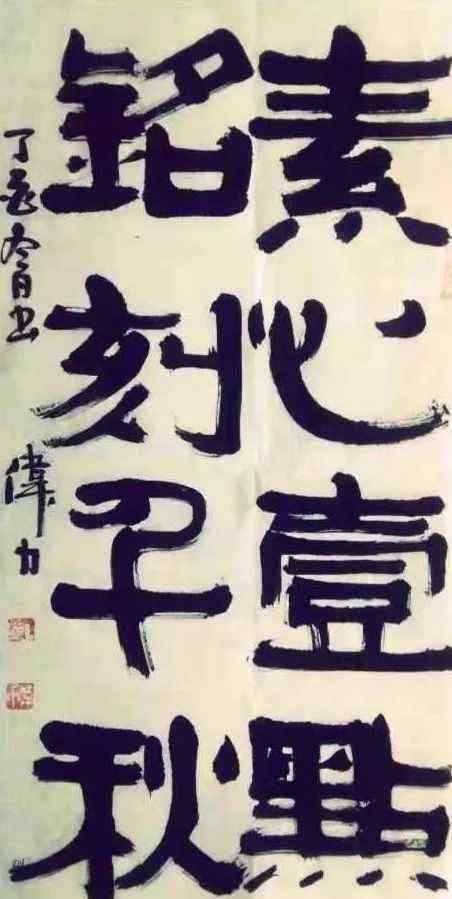 素心壹點
銘刻千秋
丁亥冬月书
偉力